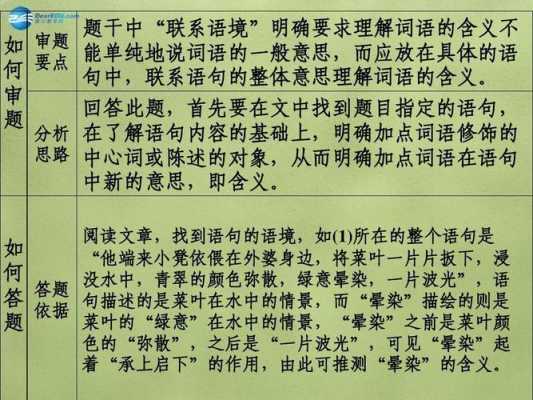 如何审题
审题
要点
题干中“联系语境”明确要求理解词语的含义不
能单纯地说词语的一般意思，而应放在具体的语
句中，联系语句的整体意思理解词语的含义。
分析
思路
回答此题，首先要在文中找到题目指定的语句，
在了解语句内容的基础上，明确加点词语修饰的
中心词或陈述的对象，从而明确加点词语在语句
中新的意思，即含义。
如何答题
答题
依据
阅读文章，找到语句的语境，如(1)所在的整个语句是
“他端来小凳依偎在外婆身边，将菜叶一片片扳下，浸
没水中，青翠的颜色弥散，绿意晕染，一片波光”，语
句描述的是菜叶在水中的情景，而“晕染”描绘的则是
菜叶的“绿意”在水中的情景，“晕染”之前是菜叶颜
色的“弥散”，之后是“一片波光”，可见“晕染”起
着“承上启下”的作用，由此可推测“晕染”的含义。